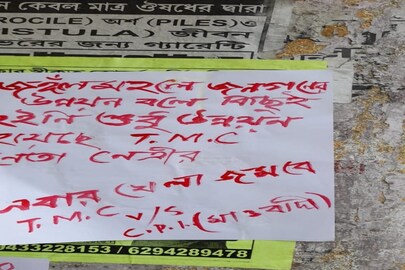 কেবল মাত্র ঔষধের দ্বারা
অর্শ (PILES)ও
জীবন
গ্যারেন্টি
জঙ্গল মহলে জনগনের
উন্নয়ন বলে কিছুই
হইনি শুধু উন্নয়ন
হয়েছে T.M.C
নেতা নেত্রীর
এবার খেলা জমবে
T.M.C V/S
C.P.I (মাওবাদী)
9433228153 / 6294289478